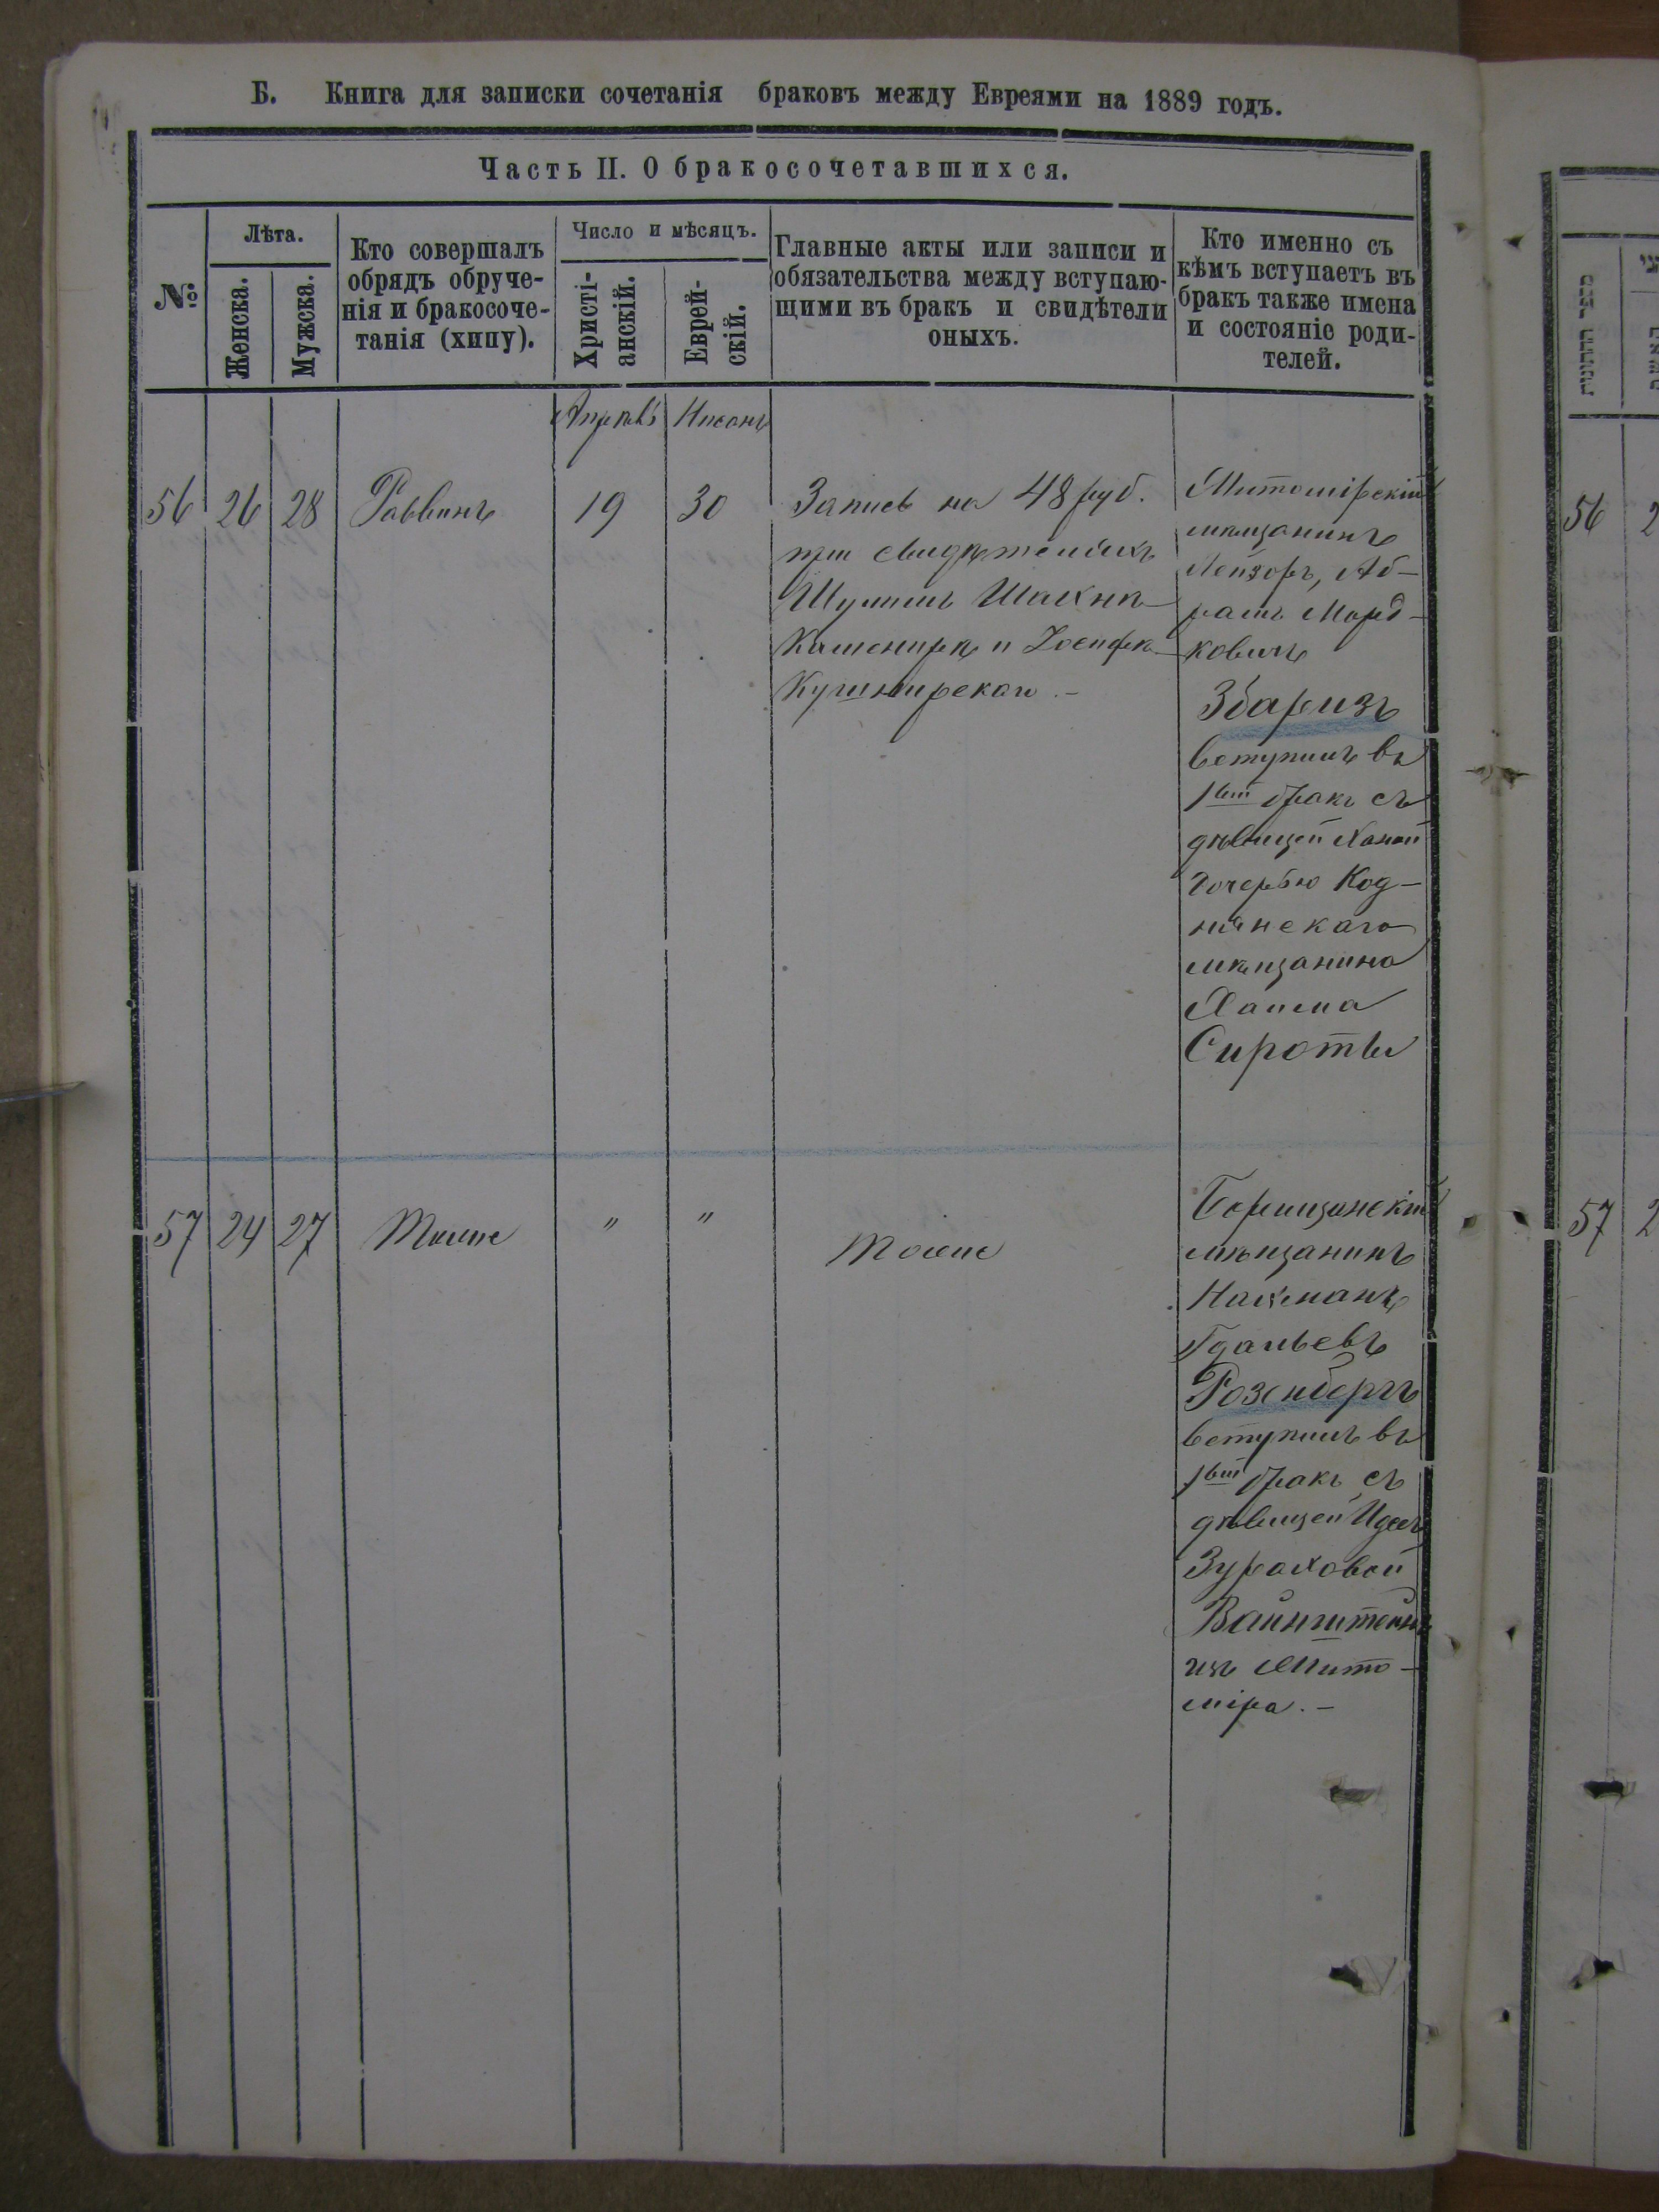 Б. Книга для записки сочетанія браковъ между Евреями на 1889 годъ.
Часть II. О бракосочетавшихся.
№
Лѣта.
Женска.
Мужска.
Кто совершалъ
обрядъ обруче-
нія и бракосоче-
танія (хипу).
Число и мѣсяцъ.
Христі-
анскій.
Еврей-
скій.
Главные акты или записи и
обязательства между вступаю-
щими въ бракъ и свидѣтели
оныхъ.
Кто именно съ
кѣмъ вступаетъ въ
бракъ также имена
и состояніе роди-
телей.
Апрель Нисанъ
56 26 28 Раввинъ 19 30
Запись на 48 руб.
при свидѣтеляхъ
Шулимъ Шахна
Каменира и Іосифа
Кушнирскаго.-
Житомірскій
мѣщанинъ
Лейзоръ, Аб-
рамъ Морд-
ковичъ
Збаризъ
вступилъ въ
1вый бракъ съ
дѣвицей Ханой
дочерью Код-
нянскаго
мѣщанина
Хаима
Сироты
57 24 27 Тоже " " Тоже
мѣщанинъ
Нахманъ
Гдальевъ
Розенбергъ
вступилъ въ
1вый бракъ съ
дѣвицей
Зураховой
Вайнштейнъ
изъ Жито-
міра.-
56 2
57 2